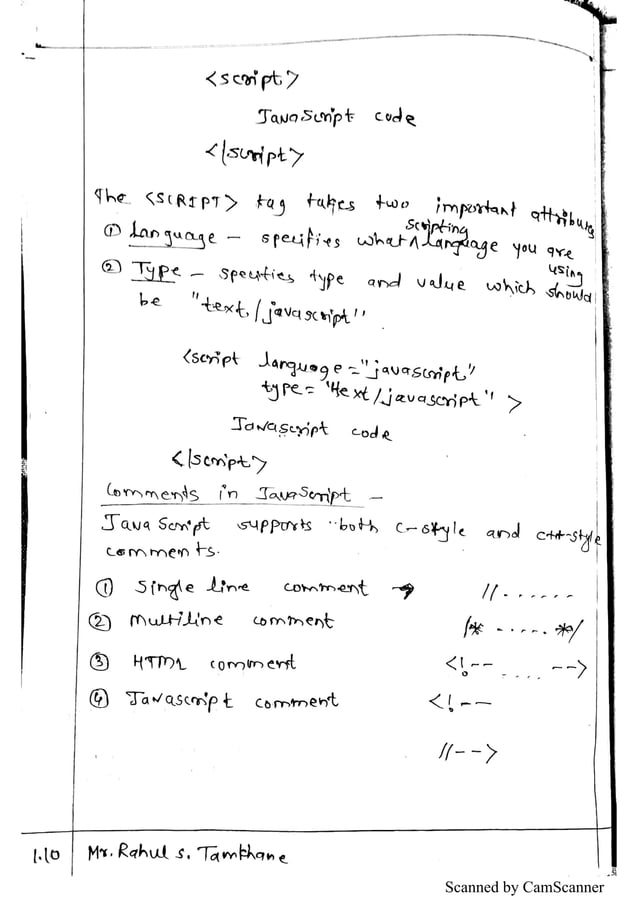 <script>
JavaScript code
</script>
The <SCRIPT> tag takes two important attributes
① Language - specifies what ^ scripting language you are using
② Type - specifies type and value which should
be "text/javascript"
<script language="javascript"
type="text/javascript" >
Javascript code
</script>
Comments in JavaScript -
JavaScript supports both C-style and C++-style
comments.
① Single line comment → //......
② Multiline comment /* ..... */
③ HTML comment <!-- .... -->
④ Javascript comment <!--
//-->
1.10 Mr. Rahul S. Tamkhane
Scanned by CamScanner